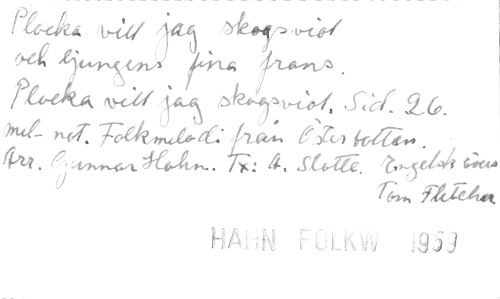 Plocka vill jag skogsviol
och ljungens fina frans.
Plocka vill jag skogsviol. Sid. 26.
mel- not. Folkmelodi från Österbotten.
Arr. Gunnar Hahn. Tx: A. Slotte. Engelsk övers
Tom Fletcher
HAHN FOLKW 1959